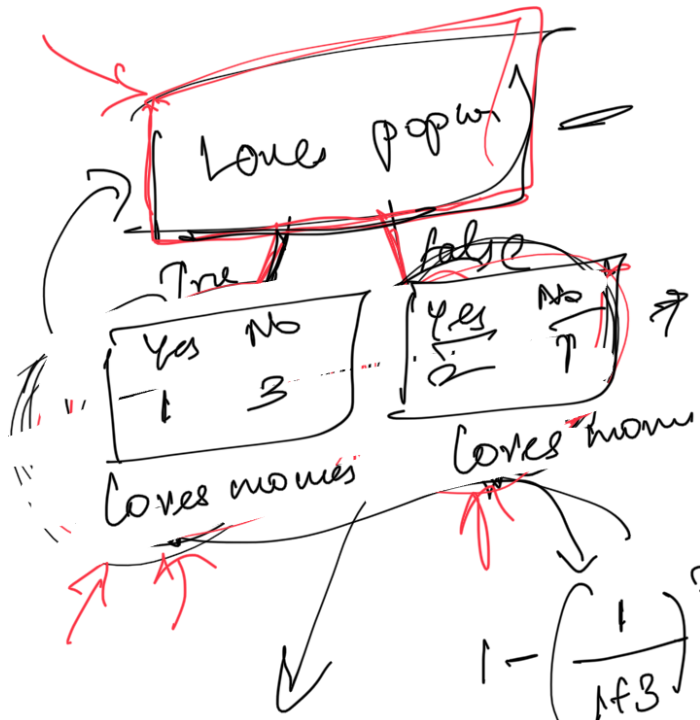 Loves popco
True
false
Yes No
1 3
Yes No
2 1
Loves movies
Loves movi
1 - (1 / 1+3)